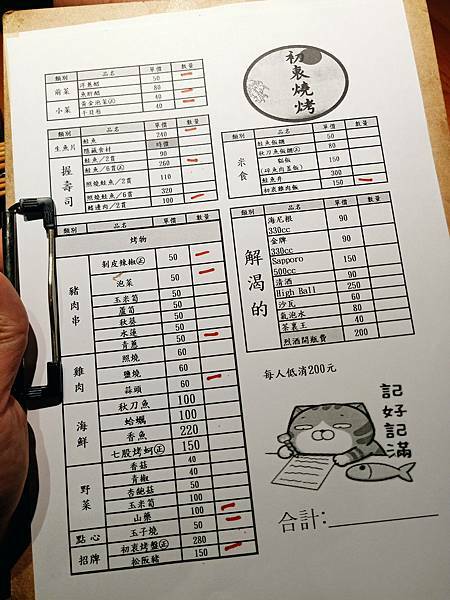 初衷燒烤
類別 品名 單價 數量
前菜 洋蔥醋 50
魚肝醋 80
小菜 黃金泡菜㊣ 40
干貝唇 40
類別 品名 單價 數量
生魚片 鮭魚 240
隱藏食材 時價
握壽司 鮭魚/2貫 90
鮭魚/6貫㊣ 260
照燒鮭魚/2貫 110
照燒鮭魚/6貫 320
鰭邊肉/2貫 100
類別 品名 單價 數量
烤物
豬肉串 剝皮辣椒㊣ 50
泡菜 50
玉米筍 50
蘆筍 50
秋葵 50
水蓮 50
青蔥 50
雞肉 照燒 60
鹽燒 60
蒜頭 60
海鮮 秋刀魚 100
蛤蠣 100
香魚 220
七股烤蚵㊣ 150
野菜 香菇 40
青椒 40
杏鮑菇 50
玉米筍 100
山藥 100
點心 玉子燒 50
招牌 初衷烤盤㊣ 280
松阪豬 150
類別 品名 單價 數量
米食 鮭魚飯糰 50
秋刀魚飯糰㊣ 80
貓飯
(碎魚肉蓋飯) 150
鮭魚丼 300
初衷雞肉飯 150
品名 單價 數量
解渴的 海尼根
330cc 90
金牌
330cc 90
Sapporo
500cc 150
清酒 90
High Ball 250
沙瓦 60
氣泡水 80
茶裏王 40
烈酒開瓶費 200
每人低消200元
記好記滿
合計: